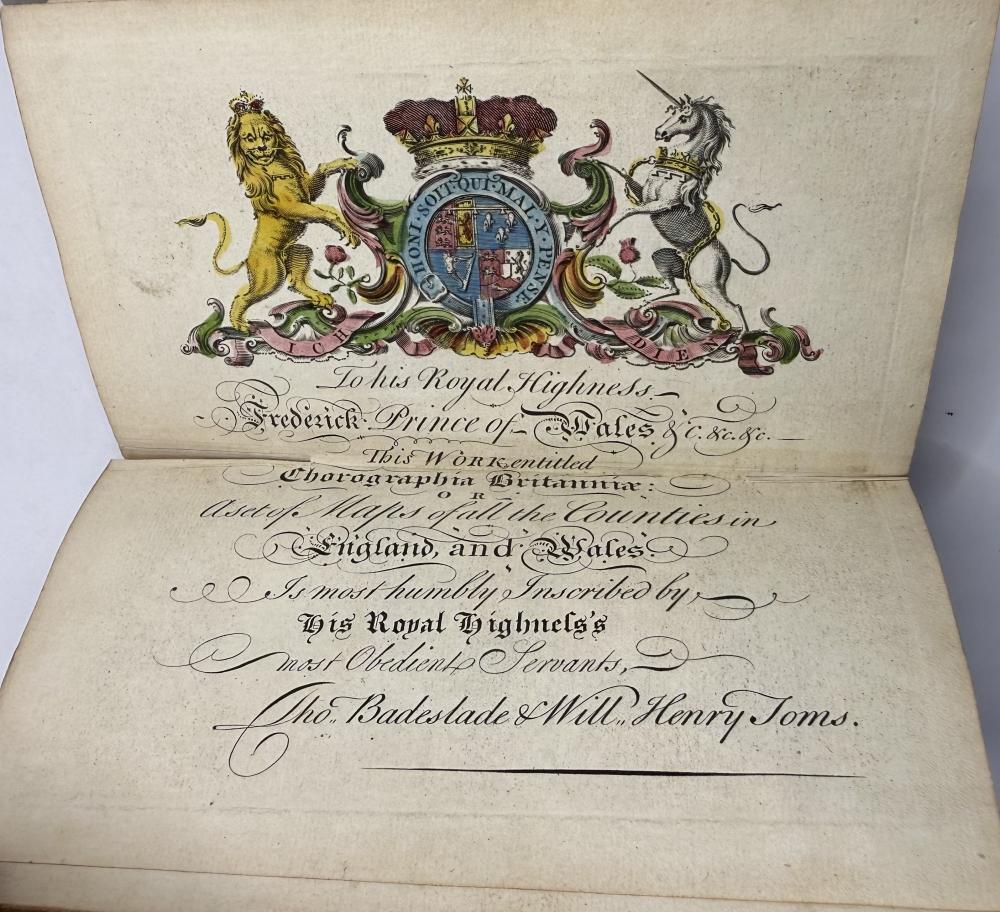 HONI · SOIT · QUI · MAL · Y · PENSE
ICH DIEN
To his Royal Highness
Frederick Prince of Wales &c. &c. &c.
This WORK entitled
Chorographia Britanniæ:
OR
A set of Maps of all the Counties in
England, and Wales.
Is most humbly Inscribed by,
His Royal Highneſs's
most Obedient Servants,
Tho.. Badeslade & Will.. Henry Toms.